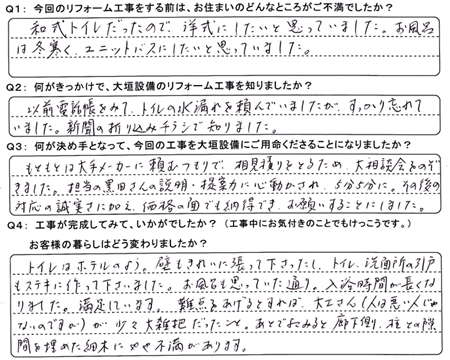 Q1: 今回のリフォーム工事をする前は、お住まいのどんなところがご不満でしたか?
和式トイレだったので、洋式にしたいと思っていました。お風呂
は冬寒く、ユニットバスにしたいと思っていました。
Q2: 何がきっかけで、大垣設備のリフォーム工事を知りましたか?
以前電話帳をみて、トイレの水漏れを頼んでいましたが、すっかり忘れて
いました。新聞の折り込みチラシで知りました。
Q3: 何が決め手となって、今回の工事を大垣設備にご用命くださることになりましたか?
もともとは大手メーカーに頼むつもりで、相見積りをとるため、大相談会をのぞ
きました。担当の黒田さんの説明・提案力に心動かされ、5分5分に。その後の
対応の誠実さに加え、価格の面でも納得でき、お願いすることにしました。
Q4: 工事が完成してみて、いかがでしたか? (工事中にお気付きのことでもけっこうです。)
お客様の暮らしはどう変わりましたか?
トイレはホテルのよう。壁もきれいに張って下さったし、トイレ、洗面所の引戸
もステキに作って下さいました。お風呂も思っていた通り。入浴時間が長くな
りました。満足しています。難点をあげるとすれば、大工さん(人は悪い人じゃ
ないのですが)が少々大雑把だったこと。あとでよくみると廊下側、柱との隙
間を埋めた細木にやや不満があります。